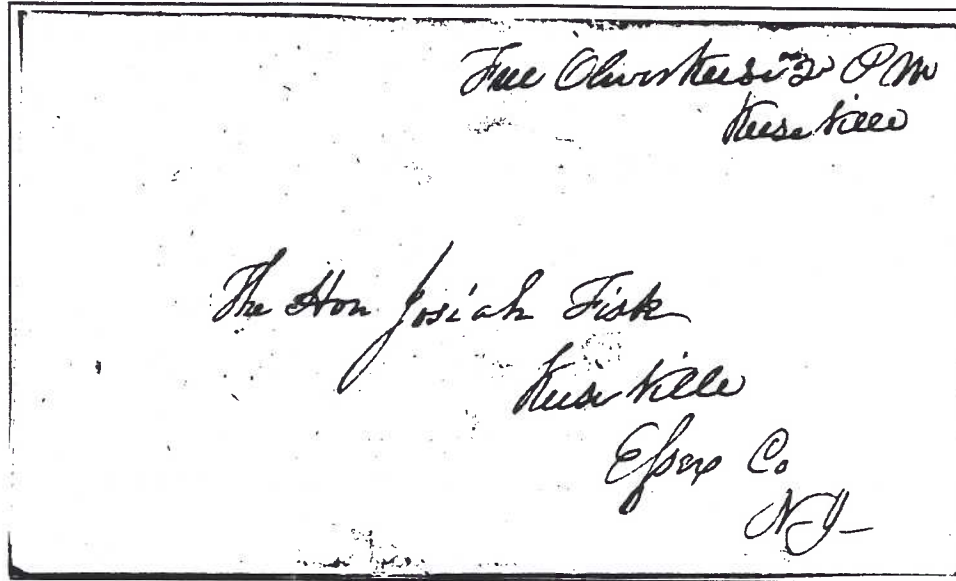 Free Oliver Keese 2d P M
Keeseville
The Hon Josiah Fisk
Keeseville
Essex Co
N.Y